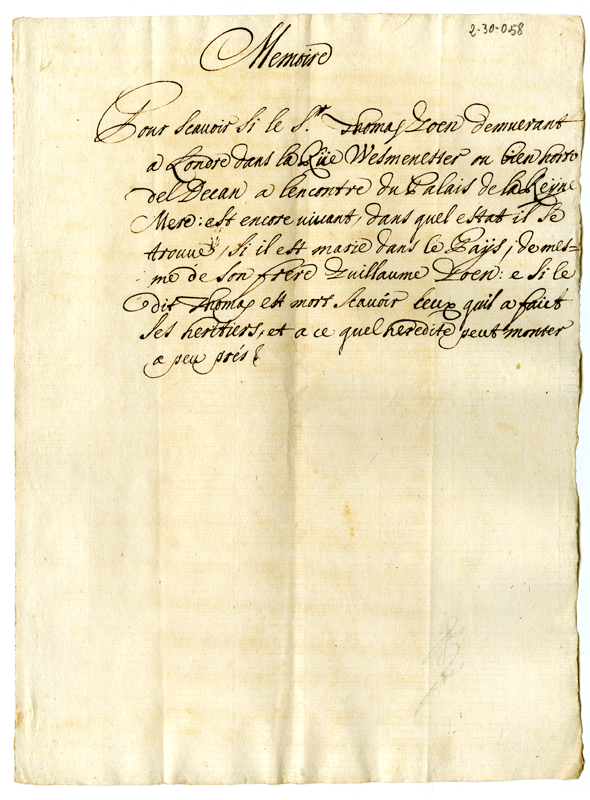 2-30-058
Memoire
Pour scavoir si le S.r Thomas Loen demeurant
a Londre dans la Rüe Wesmenester ou bien horto
del Decan a lencontre du Palais de la Reyne
Mere: est encore vivant, dans quel estat il se
trouve, si il est marie dans le Pays, de mes=
me de son frere Guillaume Loen: e si le
dit Thomas est mort scavoir ceux quil a faict
ses heritiers, et a ce quel heredité peut monter
a peu prés